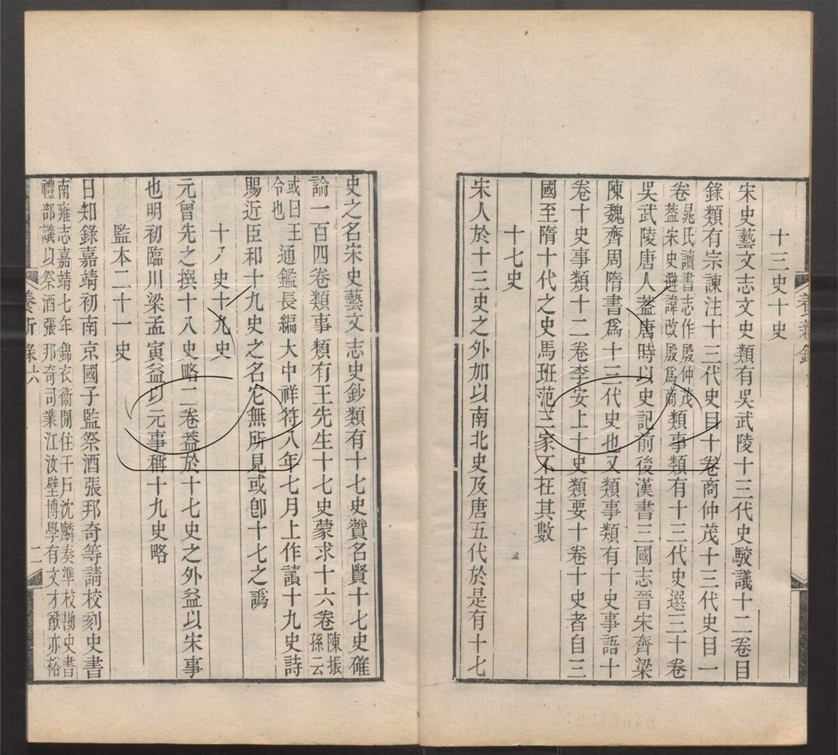 十三史十史
宋史藝文志文史類有吳武陵十三代史駮議十二卷目
錄類有宗諫注十三代史目十卷商仲茂十三代史目一
卷晁氏讀書志作殷仲茂蓋宋史避諱改殷爲商類事類有十三代史選三十卷
吳武陵唐人蓋唐時以史記前後漢書三國志晉宋齊梁
陳魏齊周隋書爲十三代史也又類事類有十史事語十
卷十史事類十二卷李安上十史類要十卷十史者自三
國至隋十代之史馬班范三家不在其數
十七史
宋人於十三史之外加以南北史及唐五代於是有十七
養新錄六
史之名宋史藝文志史鈔類有十七史贊名賢十七史確
論一百四卷類事類有王先生十七史蒙求十六卷陳振孫云
或曰王令也通鑑長編大中祥符八年七月上作讀十九史詩
賜近臣和十九史之名它無所見或卽十七之譌
十八史十九史
元曾先之撰十八史略二卷葢於十七史之外益以宋事
也明初臨川梁孟寅益以元事稱十九史略
監本二十一史
日知錄嘉靖初南京國子監祭酒張邦奇等請校刻史書
南雍志嘉靖七年錦衣衞閒住千戶沈麟奏準校勘史書
禮部議以祭酒張邦奇司業江汝璧博學有文才猷亦裕
養新錄六
二